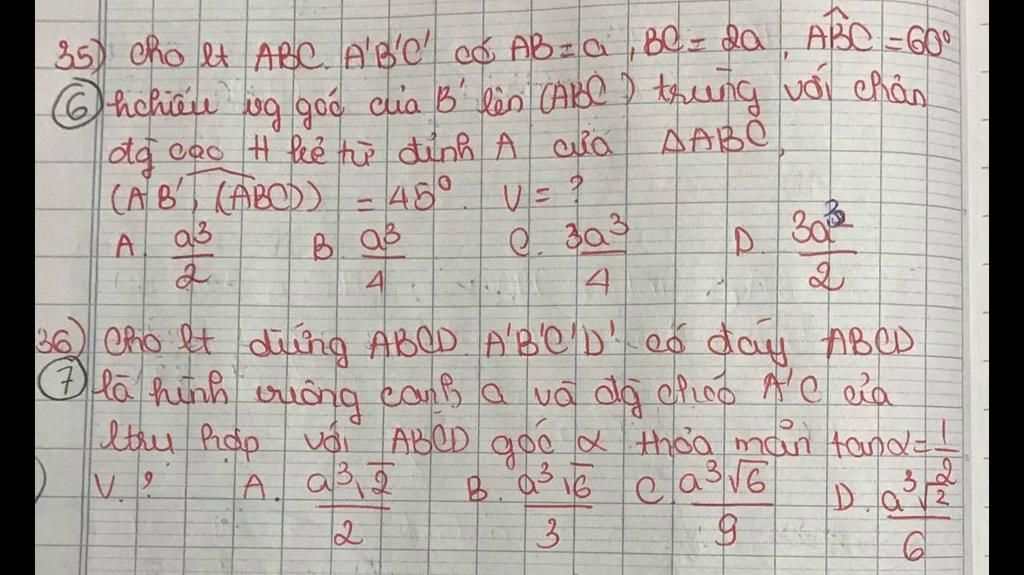 35) Cho lt ABC. A'B'C' có AB = a, BC = 2a, ABC = 60°
6 hchiếu vg góc của B' lên (ABC) trùng với chân
đg cao H kẻ từ đỉnh A của ΔABC,
(AB', (ABC)) = 45°. V = ?
A. a³/2 B. a³/4 C. 3a³/4 D. 3a³/2
36) Cho lt đứng ABCD. A'B'C'D' có đáy ABCD
7 là hình vuông cạnh a và đg chéo A'C của
ltrụ hợp với ABCD góc α thỏa mãn tanα = 1/2
V. ? A. a³√2/2 B. a³√6/3 C. a³√6/9 D. a³√2/6